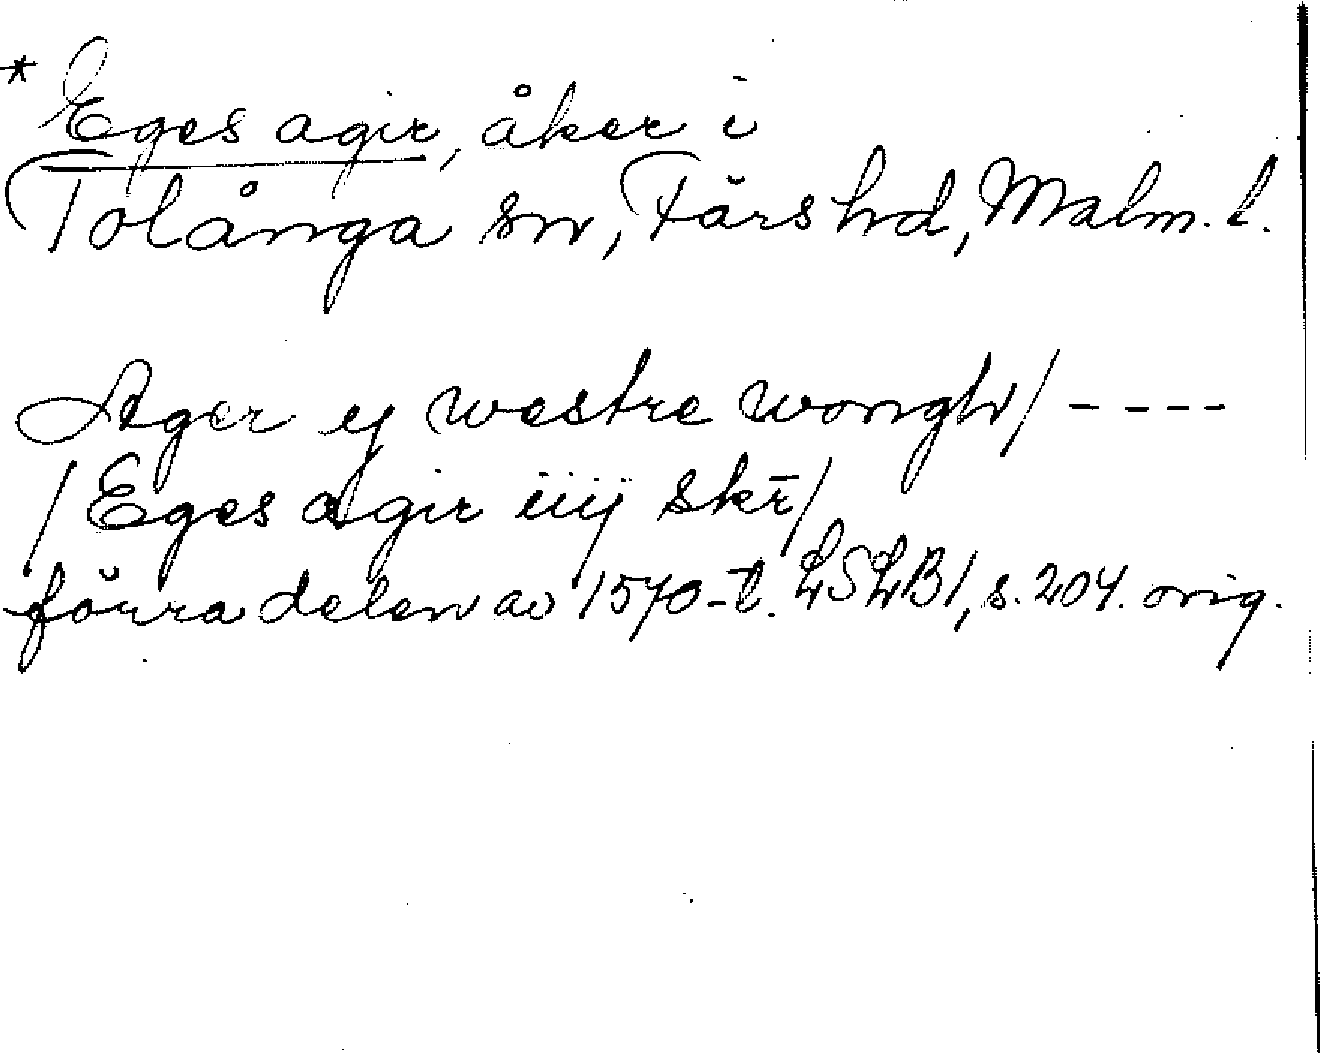 * Eges agir, åker i
Tolånga sn, Färs hd, Malm. l.
Ager ej westre wongh/ - - - -
/ Eges agir iiij skr̄/
förra delen av 1570-t. LSLB1, s. 204. orig.